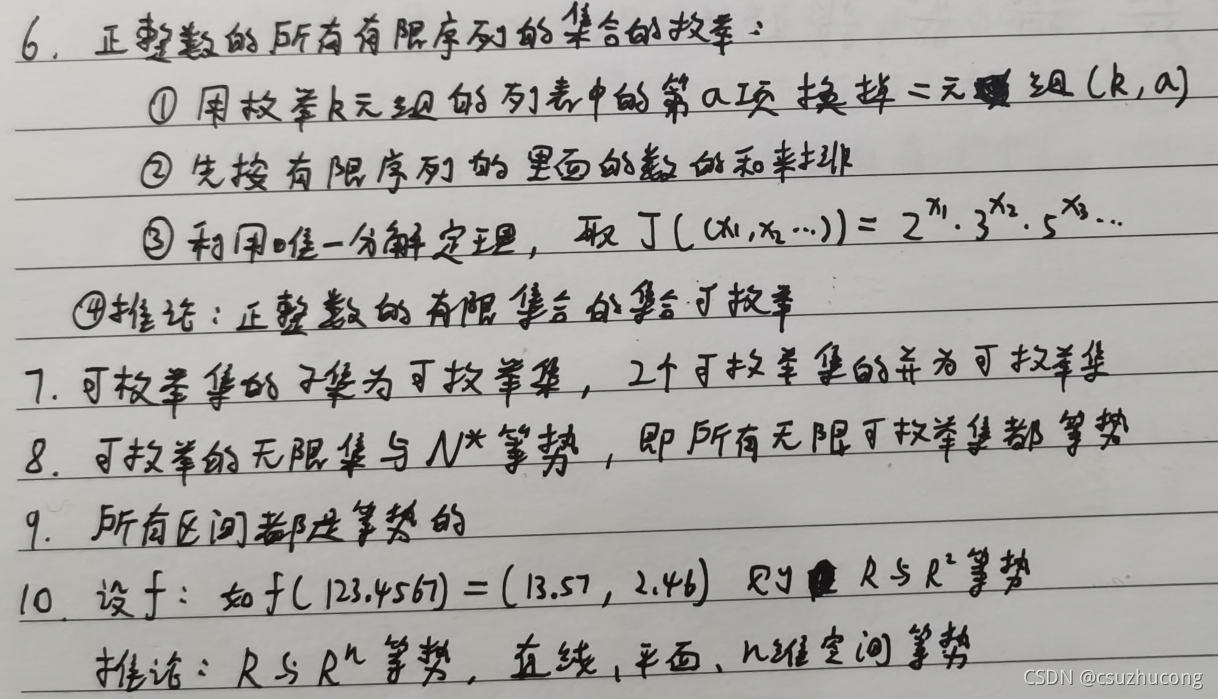 6. 正整数的所有有限序列的集合的枚举：
① 用枚举k元组的列表中的第a项换掉二元组(k,a)
② 先按有限序列的里面的数的和来排
③ 利用唯一分解定理，取J((x₁,x₂…))=2^x₁·3^x₂·5^x₃…
④推论：正整数的有限集合的集合可枚举
7. 可枚举集的子集为可枚举集，2个可枚举集的并为可枚举集
8. 可枚举的无限集与N*等势，即所有无限可枚举集都等势
9. 所有区间都是等势的
10. 设f：如f(123.4567)=(13.57, 2.46) 则 R与R²等势
推论：R与Rⁿ等势，直线、平面、n维空间等势
CSDN @csuzhucong